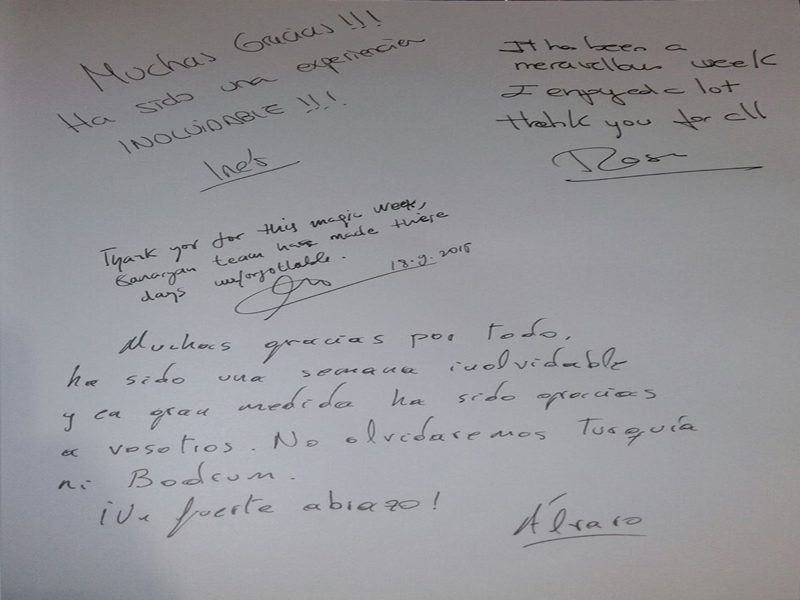 Muchas Gracias !!!
Ha sido una experiencia
INOLVIDABLE !!!
Inés
It has been a
meravellous week
I enjoyed a lot
thank you for all
Rosa
Thank you for this magic week,
team has made these
days unforgotlable.
18.9.2015
Muchas gracias por todo,
ha sido una semana inolvidable
y en gran medida ha sido gracias
a vosotros. No olvidaremos Turquía
ni Bodrum.
¡Un fuerte abrazo!
Álvaro